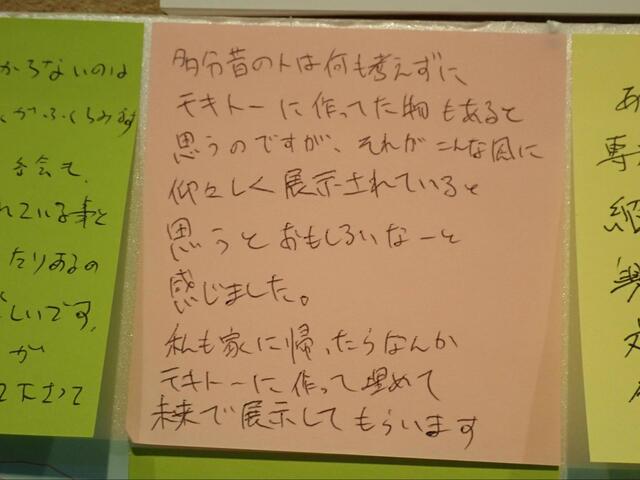 からないのは
がふくらみます
れている事と
たりあるの
しいです。
が
多分昔の人は何も考えずに
テキトーに作ってた物もあると
思うのですが、それがこんな風に
仰々しく展示されていると
思うとおもしろいなーと
感じました。
私も家に帰ったらなんか
テキトーに作って埋めて
未来で展示してもらいます
あ
専